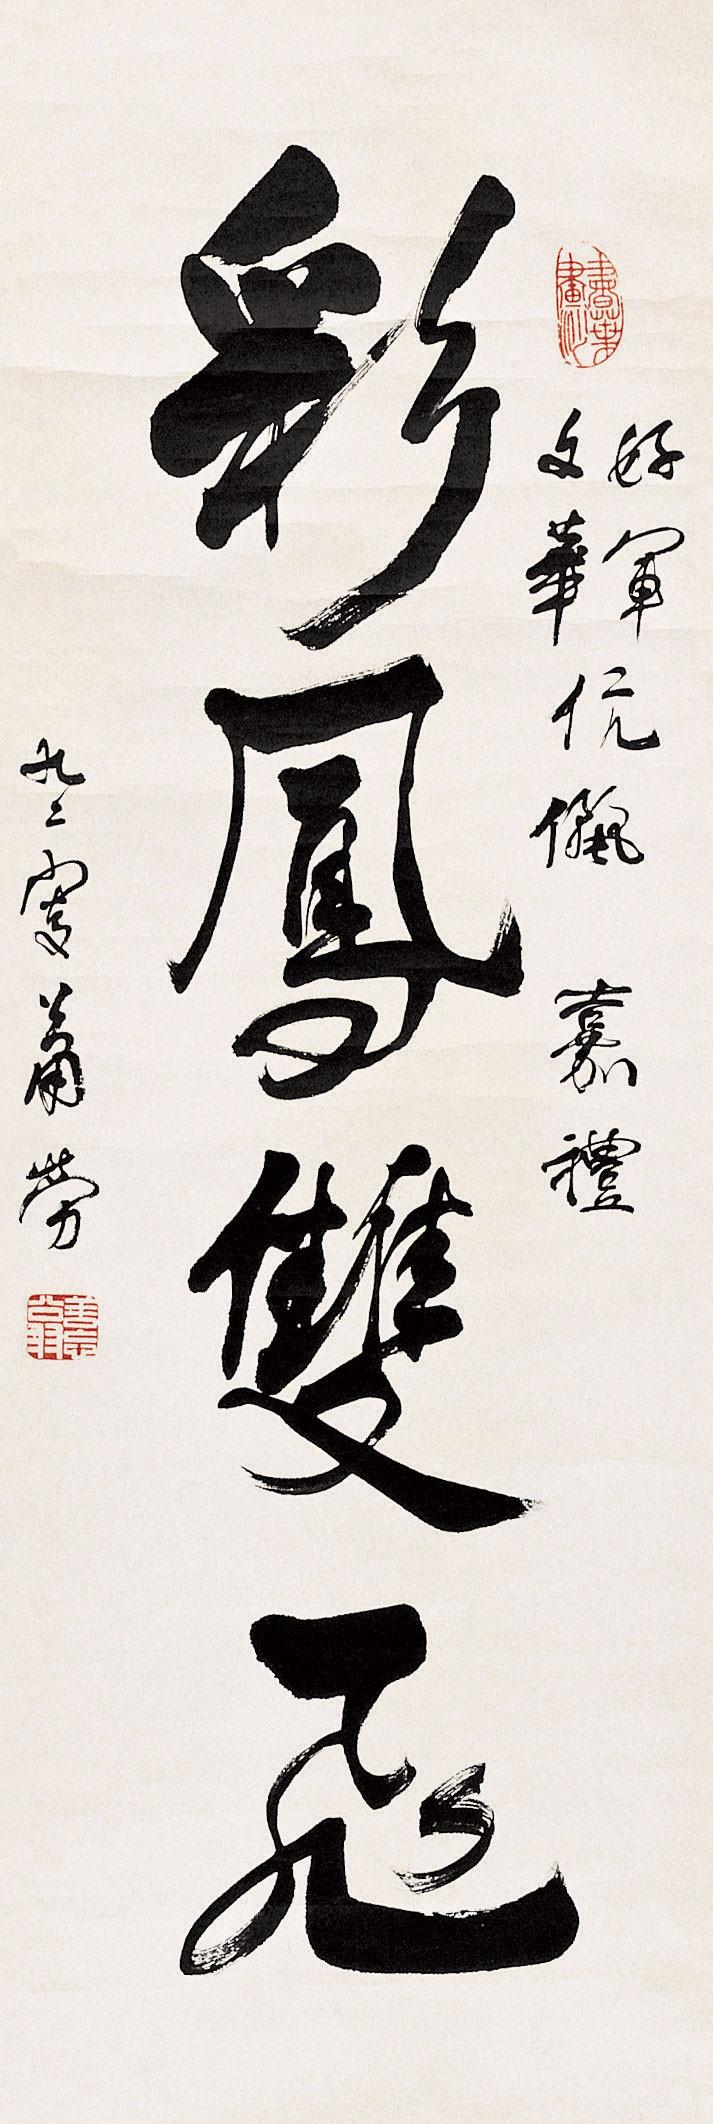 好軍
文華伉儷 嘉禮
彩鳳雙飛
九二叟蕭勞